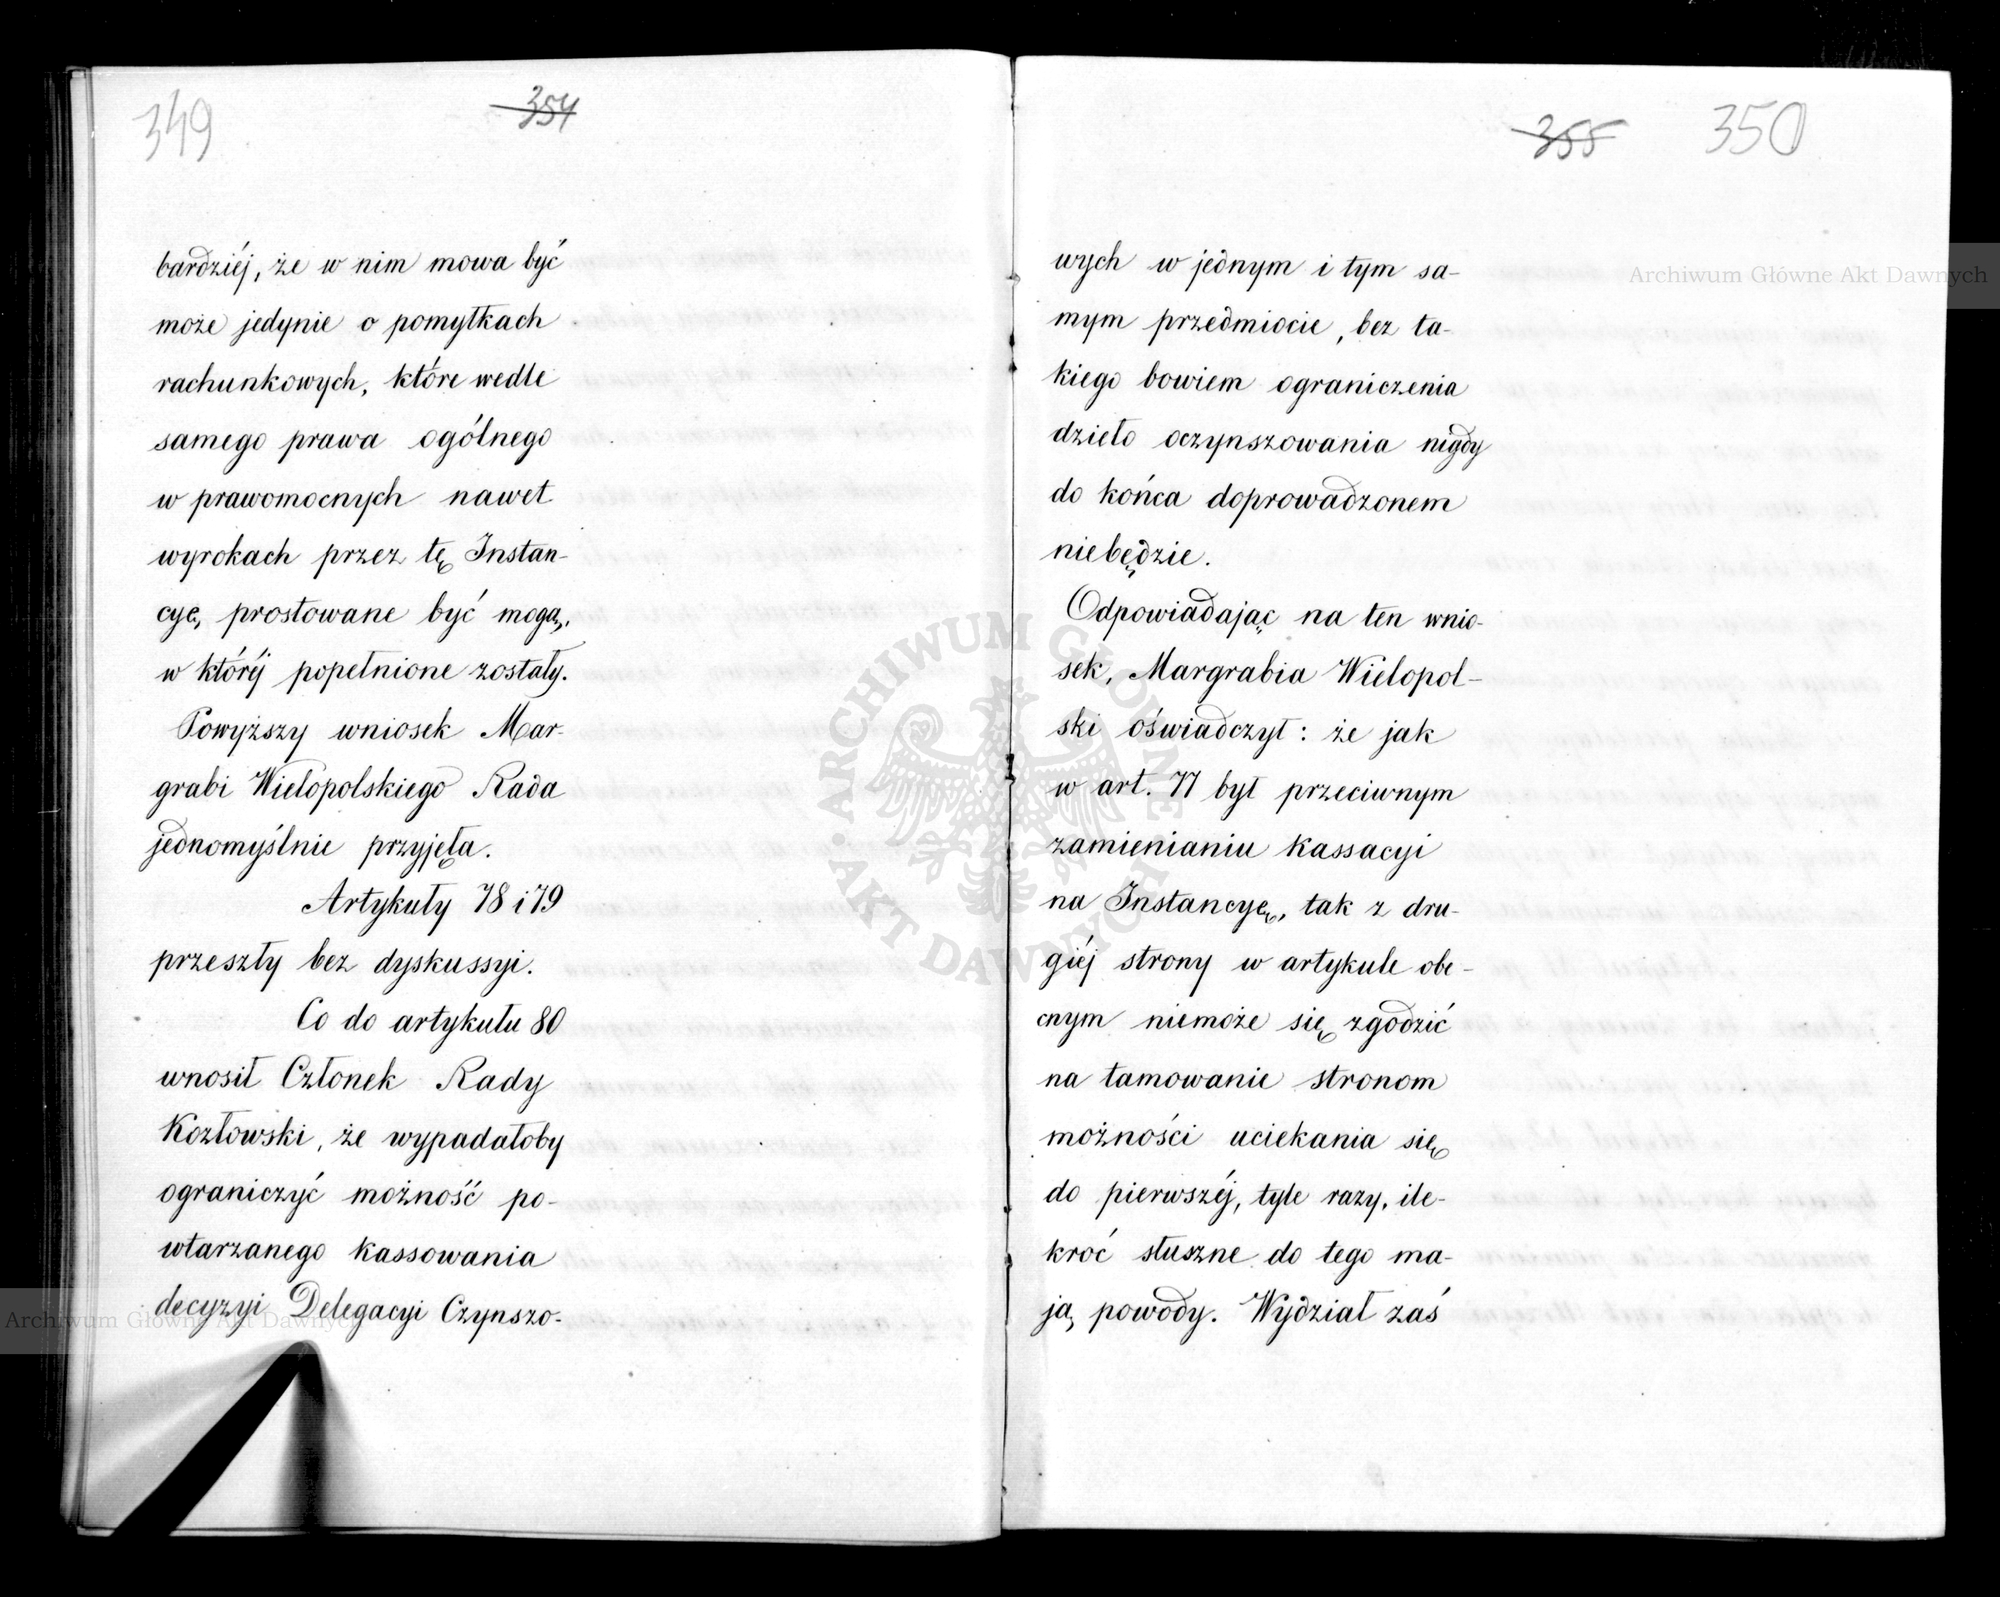 349
354
bardziéj, że w nim mowa być
może jedynie o pomyłkach
rachunkowych, które wedle
samego prawa ogólnego
w prawomocnych nawet
wyrokach przez tę Instan-
cyę, prostowane być mogą,
w któréj popełnione zostały.
Powyższy wniosek Mar-
grabi Wielopolskiego Rada
jednomyślnie przyjęła.
Artykuły 78 i 79
przeszły bez dyskussyi.
Co do artykułu 80
wnosił Członek Rady
Kozłowski, że wypadałoby
ograniczyć możność po-
wtarzanego kassowania
decyzyi Delegacyi Czynszo-
355
350
wych w jednym i tym sa-
mym przedmiocie, bez ta-
kiego bowiem ograniczenia
dzieło oczynszowania nigdy
do końca doprowadzonem
niebędzie.
Odpowiadając na ten wnio-
sek, Margrabia Wielopol-
ski oświadczył: że jak
w art. 77 był przeciwnym
zamienianiu kassacyi
na Instancyę, tak z dru-
giéj strony w artykule obe-
cnym niemoże się zgodzić
na tamowanie stronom
możności uciekania się
do pierwszéj, tyle razy, ile-
kroć słuszne do tego ma-
ją powody. Wydział zaś
Archiwum Główne Akt Dawnych
Archiwum Główne Akt Dawnych
ARCHIWUM GŁÓWNE · AKT DAWNYCH ·